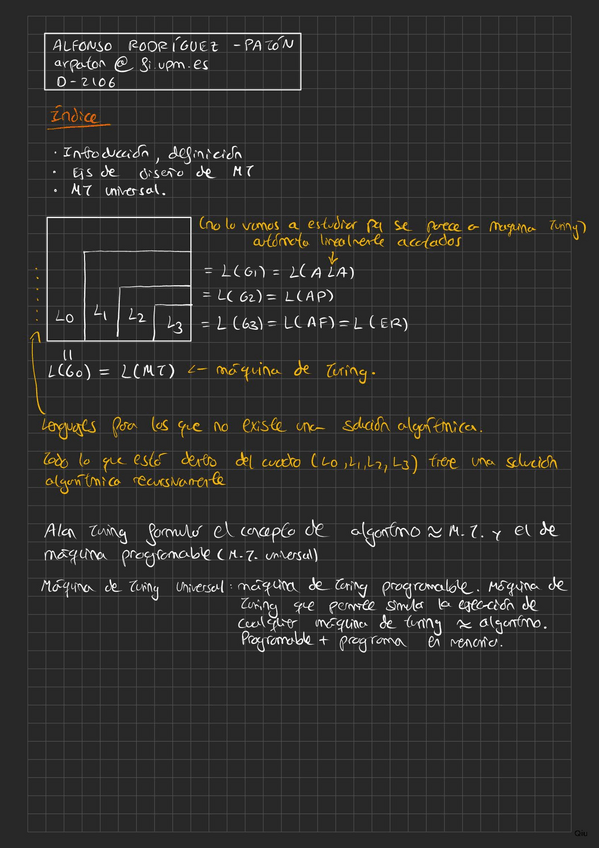 ALFONSO RODRÍGUEZ - PATÓN
arpaton @ fi.upm.es
D-2106
Índice
· Introducción, definición
· Ejs de diseño de MT
· MT universal.
(no lo vamos a estudiar pq se parece a maquina Turing)
autómata linealmente acotados
= L(G1) = L(ALA)
= L(G2) = L(AP)
L0 L1 L2 L3 = L(G3) = L(AF) = L(ER)
L(G0) = L(MT) <- máquina de Turing.
Lenguajes para los que no existe una solución algorítmica.
Todo lo que está dentro del cuadro (L0, L1, L2, L3) tiene una solución
algorítmica recursivamente
Alan Turing formuló el concepto de algoritmo ≈ M.T. y el de
máquina programable (M.T. universal)
Máquina de Turing universal: máquina de Turing programable. Máquina de
Turing que permite simular la ejecución de
cualquier máquina de Turing ≈ algoritmo.
Programable + programa en memoria.